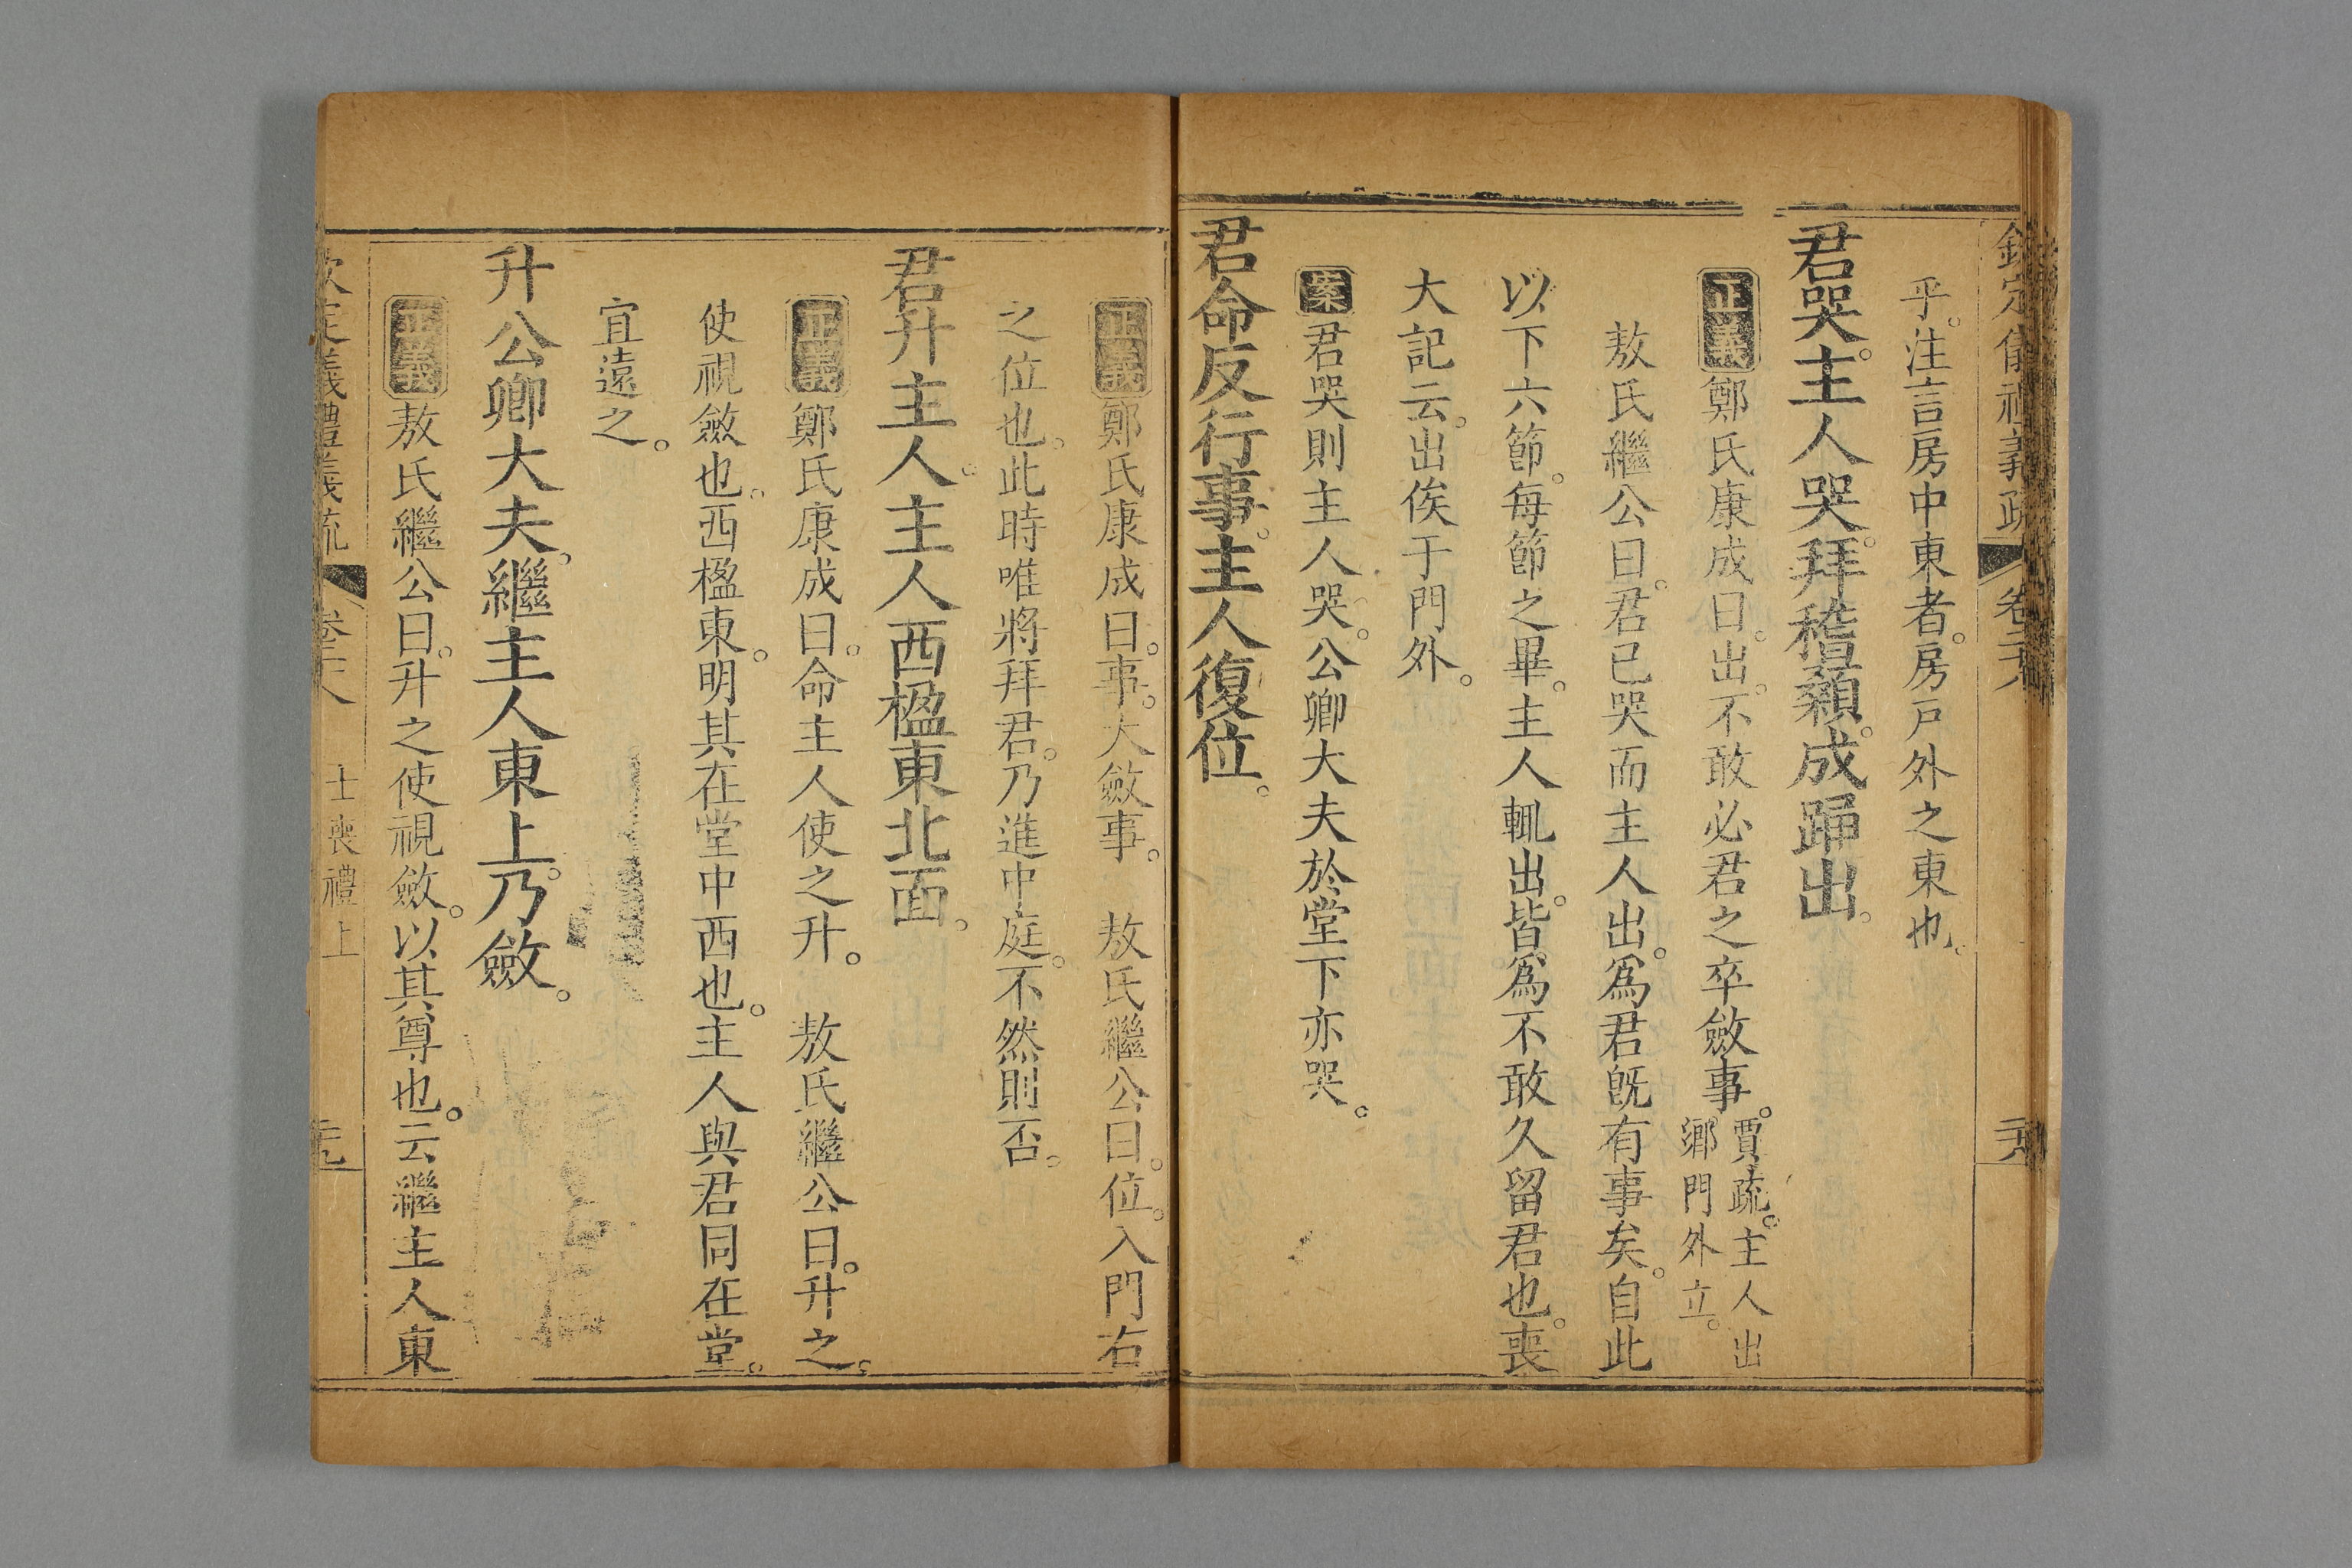 欽定儀禮義疏 卷二十八
乎。注言房中東者。房戸外之東也。
君哭。主人哭。拜稽顙。成踊出。
正義鄭氏康成曰。出。不敢必君之卒斂事。賈疏。主人出鄉門外立。
敖氏繼公曰。君已哭而主人出。為君旣有事矣。自此
以下六節。每節之畢。主人輒出。皆為不敢久留君也。喪
大記云。出俟于門外。
案君哭則主人哭。公卿大夫於堂下亦哭。
君命反行事。主人復位。
正義鄭氏康成曰。事。大斂事。 敖氏繼公曰。位。入門右
之位也。此時唯將拜君。乃進中庭。不然則否。
君升主人。主人西楹東北面。
正義鄭氏康成曰。命主人使之升。 敖氏繼公曰。升之。
使視斂也。西楹東。明其在堂中西也。主人與君同在堂。
宜遠之。
升公卿大夫。繼主人東上。乃斂。
正義敖氏繼公曰。升之使視斂。以其尊也。云繼主人東
義禮義疏 士喪禮上